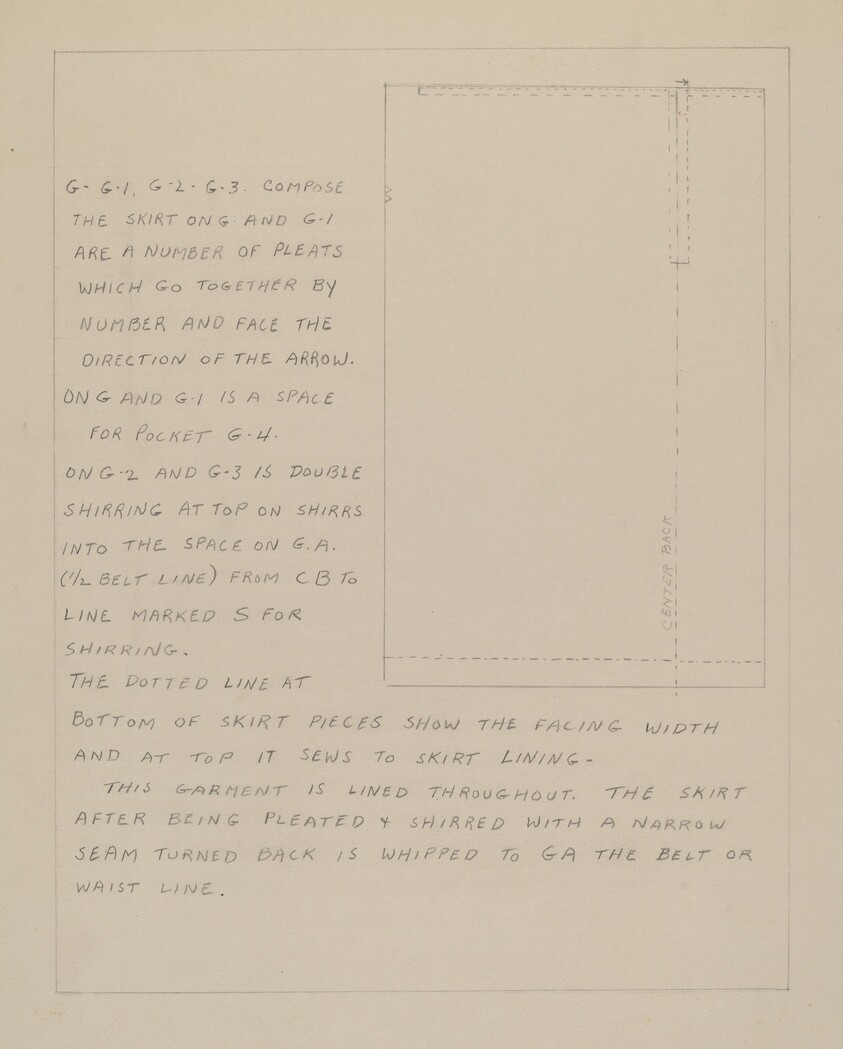 G- G-1, G-2- G-3. COMPOSE
THE SKIRT ON G. AND G-1
ARE A NUMBER OF PLEATS
WHICH GO TOGETHER BY
NUMBER AND FACE THE
DIRECTION OF THE ARROW.
ON G AND G-1 IS A SPACE
FOR POCKET G-4.
ON G-2 AND G-3 IS DOUBLE
SHIRRING AT TOP ON SHIRRS
INTO THE SPACE ON G.A.
(1/2 BELT LINE) FROM CB TO
LINE MARKED S FOR
SHIRRING.
THE DOTTED LINE AT
BOTTOM OF SKIRT PIECES SHOW THE FACING WIDTH
AND AT TOP IT SEWS TO SKIRT LINING-
THIS GARMENT IS LINED THROUGHOUT. THE SKIRT
AFTER BEING PLEATED & SHIRRED WITH A NARROW
SEAM TURNED BACK IS WHIPPED TO GA THE BELT OR
WAIST LINE.
CENTER BACK